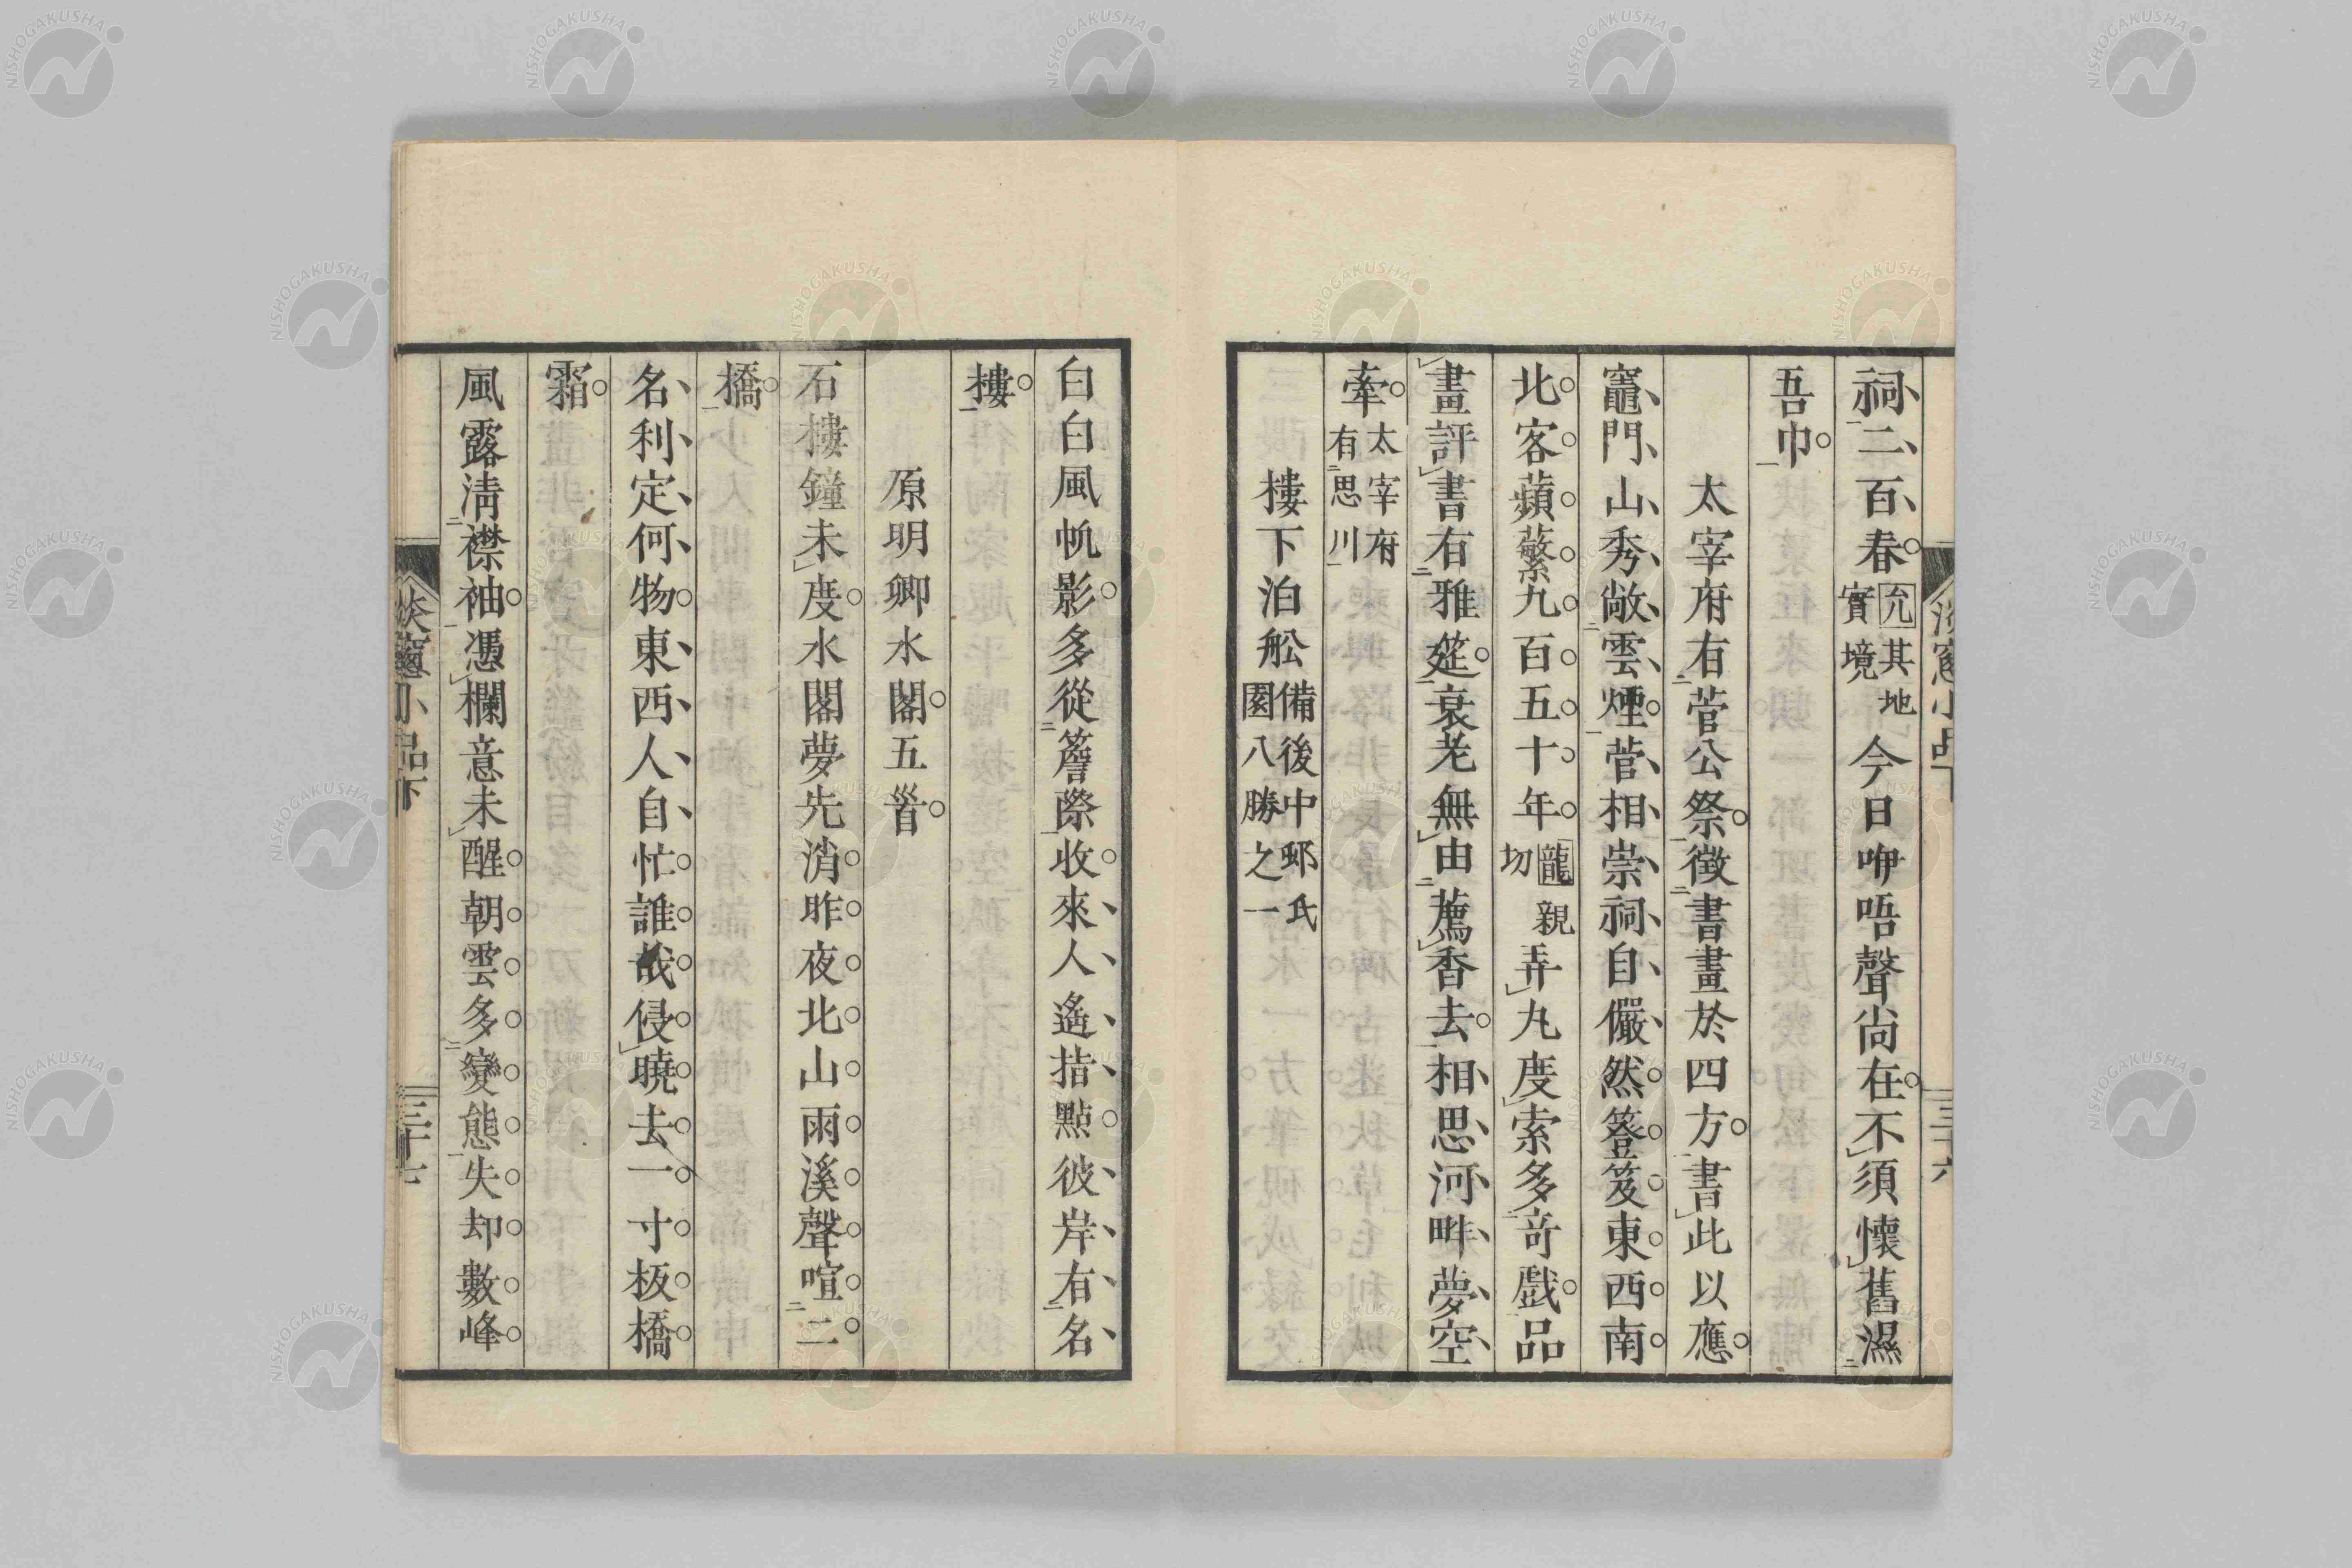 祠二百春允其地實境今日咿唔聲尚在不須懷舊濕
吾巾
太宰府有菅公祭徵書畫於四方書此以應
竈門山秀敞雲煙菅相崇祠自儼然簦笈東西南
北客蘋蘩九百五十年龍親切弄丸度索多奇戲品
畫評書有雅筵衰老無由薦香去相思河畔夢空
牽太宰府有思川
樓下泊舩備後中邨氏園八勝之一
白白風帆影多從簷際收來人遙指點彼岸有名
樓
原明卿水閣五甞
石樓鐘未度水閣夢先消昨夜北山雨溪聲喧二
橋
名利定何物東西人自忙誰哉侵曉去一寸板橋
霜
風露淸襟袖憑欄意未醒朝雲多變態失却數峰
窻小品下
三十七
NISHOGAKUSHA